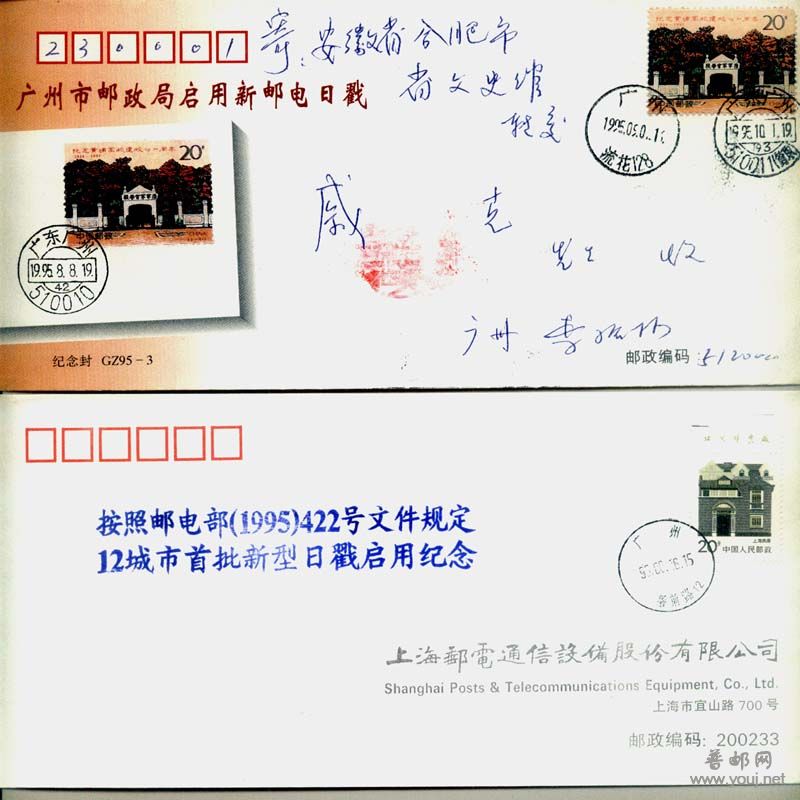 230001
寄:安徽省合肥市
省文史馆
转交
广州市邮政局启用新邮电日戳
纪念黄埔军校建校七十周年
20分
中国邮政
广东广州
1995.8.8.19
42
510010
纪念黄埔军校建校七十周年
20分
中国邮政
广
流花128
1995.10.1.19
戚 克
先生 收
广州 李
纪念封 GZ95-3
邮政编码:
按照邮电部(1995)422号文件规定
12城市首批新型日戳启用纪念
20分
上海民居
中国人民邮政
广州
上海郵電通信設備股份有限公司
Shanghai Posts & Telecommunications Equipment, Co., Ltd.
上海市宜山路 700 号
邮政编码: 200233
普邮网
www.youj.net